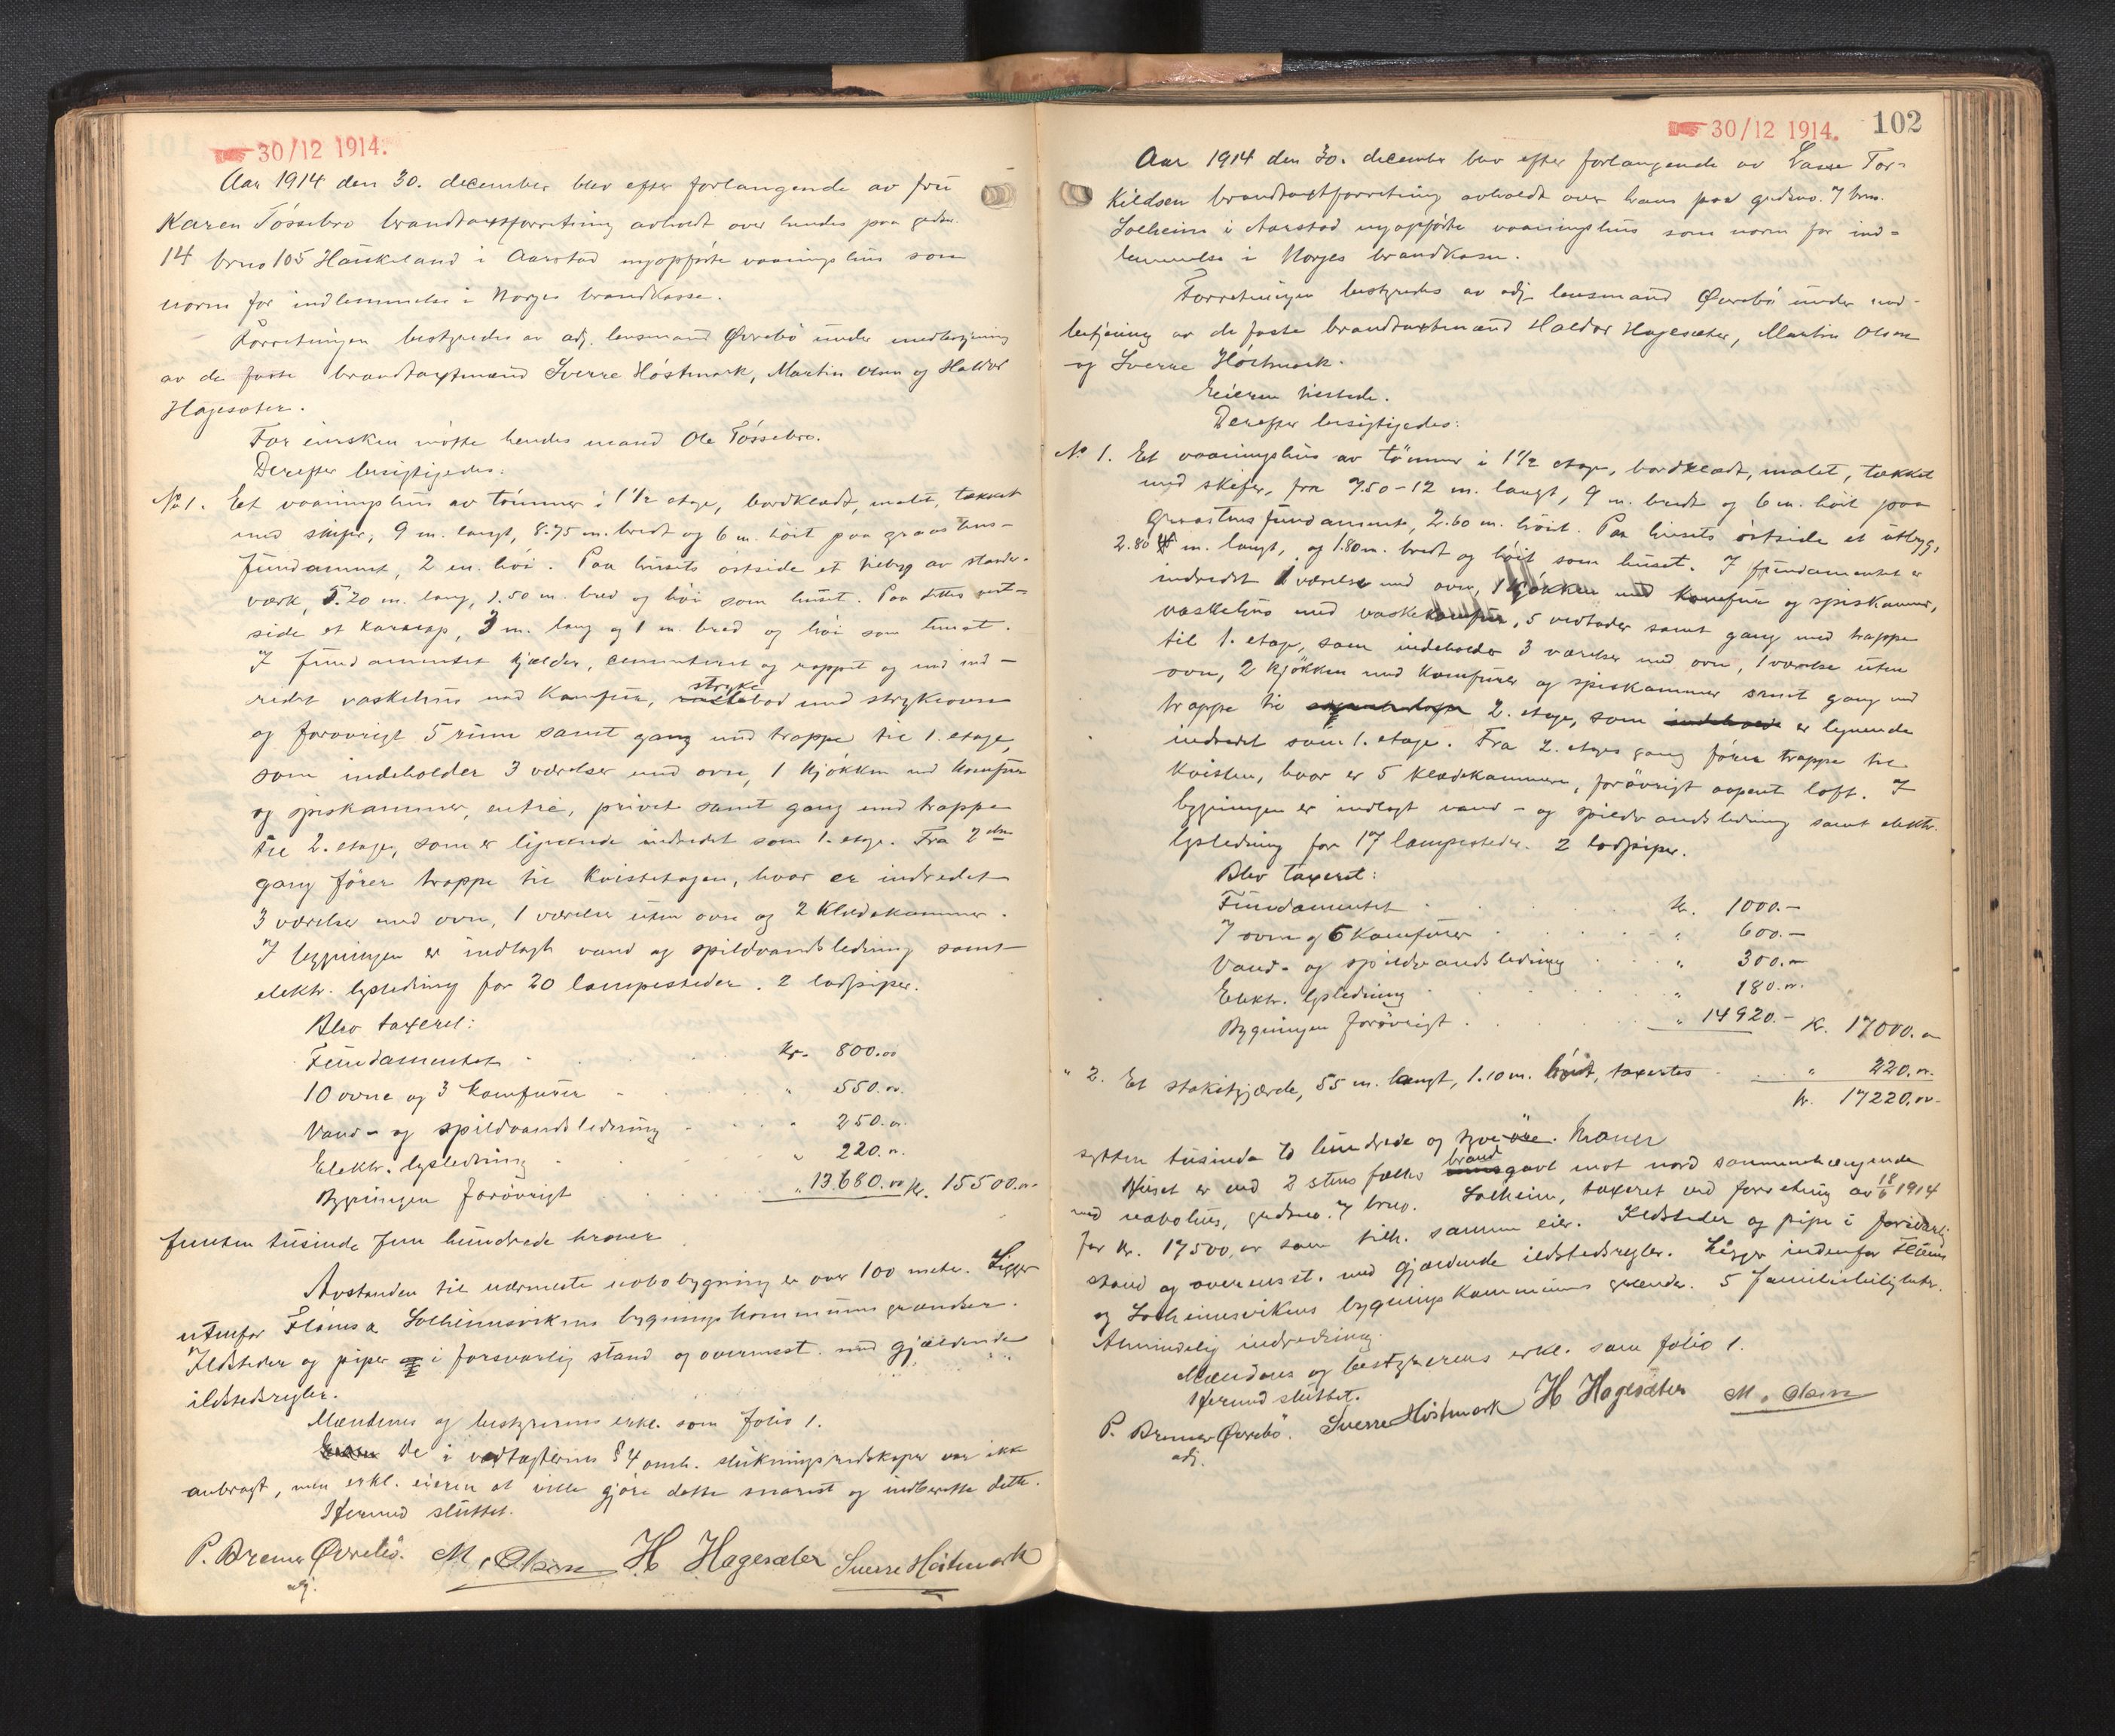 30/12 1914.
Aar 1914 den 30. december blev efter forlangende av fru
Karen Tössebro brandtaxtforretning avholdt over hendes paa gadno.
14 brno 105 Haukeland i Aarstad nyopførte vaaningshus som
norm for indlemmelse i Norges brandkasse.
Forretningen bestyredes av adj. lensmand Øvrebö under medbetjening
av de faste brandtaxtmænd Sverre Höstmark, Martin Olsen og Haldor
Hagesæter.
For eiersken mötte hendes mand Ole Tössebro.
Derefter besigtigedes:
No 1. Et vaaningshus av tömmer i 1 1/2 etage, bordklædt, malet, tækket
med skifer, 9 m. langt, 8.75 m. bredt og 6 m. höit paa graastens-
fundament, 2 m. höi. Paa husets östside et tilbyg av stander-
værk, 5.20 m. lang, 1.50 m. bred og höi som huset. Paa dettes vest-
side et karnap, 3 m. lang og 1 m. bred og höi som huset.
I fundamentet kjælder, cementeret og rappet og med ind-
redet vaskehus med komfur, stryke bod med strykeovn
og forövrigt 5 rum samt gang med trappe til 1. etage,
som indeholder 3 værelser med ovn, 1 kjökken med komfur
og spiskammer, entré, privet samt gang med trappe
til 2. etage, som er lignende indredet som 1. etage. Fra 2den
gang förer trappe til kvistetagen, hvor er indredet
3 værelser med ovn, 1 værelse uten ovn og 2 klædekammer.
I bygningen er indlagt vand og spildvandsledning samt
elektr. lysledning for 20 lampesteder. 2 lodpiper.
Blev taxeret:
Fundamentet . . . Kr. 800.00
10 ovne og 3 komfurer . . . " 550.00.
Vand- og spildvandsledning . . . " 250.00.
Elektr. lysledning . . . " 220.00.
Bygningen forövrigt . . . " 13.680.00 Kr. 15500.00
femten tusinde fem hundrede kroner
Avstanden til nærmeste nabobygning er over 100 meter. Ligger
utenfor Fløens & Solheimsvikens bygningskommunes grændser.
Ildsteder og piper i forsvarlig stand og overensst. med gjældende
ildstedsregler.
Mændenes og bestyrerens erkl. som folio 1.
De i vedtægternes § 4 omh. slukningsredskaper var ikke
anbragt, men erkl. eieren at ville gjöre dette snarest og indberette dette.
Hermed sluttet.
P. Bremer Øvrebö. M. Olsen H Hagesæter Sverre Höstmark
adj.
30/12 1914. 102
Aar 1914 den 30. december blev efter forlangende av Lasse Tor-
kildsen brandtaxtforretning avholdt over hans paa gadsno. 7 brno.
Solheim i Aarstad nyopförte vaaningshus som norm for ind-
lemmelse i Norges brandkasse.
Forretningen bestyredes av adj. lensmand Øvrebö under med-
betjening av de faste brandtaxtmænd Haldor Hagesæter, Martin Olsen
og Sverre Höstmark.
Eieren tilstede.
Derefter besigtigedes:
No 1. Et vaaningshus av tömmer i 1 1/2 etage, bordklædt, malet, tækket
med skifer, fra 7.50-12 m. langt, 9 m. bredt og 6 m. höit paa
graastensfundament, 2.60 m. höit. Paa husets östside et utbyg,
2.80 m. langt, og 1.80 m. bredt og höit som huset. I fundamentet er
indredet 1 værelse med ovn, 1 kjökken med komfur og spiskammer,
vaskehus med vaskekomfur, 5 vedboder samt gang med trappe
til 1. etage, som indeholder 3 værelser med ovn, 1 værelse uten
ovn, 2 kjökken med komfurer og spiskammer samt gang med
trappe til 2. etage, som er lignende
indredet som 1. etage. Fra 2. etages gang förer trappe til
kvisten, hvor er 5 klædekammere, forövrigt aapent loft. I
bygningen er indlagt vand- og spildvandsledning samt elektr.
lysledning for 17 lampesteder. 2 lodpiper.
Blev taxeret:
Fundamentet . . . kr. 1000.-
7 ovne og 6 komfurer . . . " 600.-
Vand- og spildvandsledning . . . " 300.-
Elektr. lysledning . . . " 180.00.
Bygningen forövrigt . . . " 14920.- Kr. 17000.00
" 2. Et stakitgjærde, 55 m. langt, 1.10 m. höit, taxertes . . . " 220.00.
kr. 17220.00.
sytten tusinde to hundrede og tyve kroner
Huset er ved 2 stens fælles brand gavl mot nord sammenhængende
med nabohus, gadsno. 7 brno. Solheim, taxeret ved forretning av 18/6 1914
for kr. 17500,00 som tilh. samme eier. Ildsteder og pipe i forsvarlig
stand og overensst. med gjældende ildstedsregler. Ligger indenfor Fløens
og Solheimsvikens bygningskommunes grænder. 5 familieleiligheter.
Almindelig indredning.
Mændenes og bestyrerens erkl. som folio 1.
Hermed sluttet.
P. Bremer Øvrebö. Sverre Höstmark H Hagesæter M. Olsen
adj.